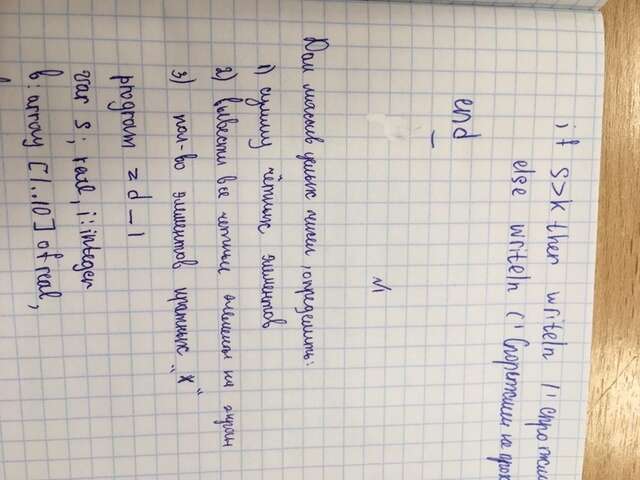 if S>k then writeln ('спортсмен
else writeln ('Спортсмен не прох
end
№1
Дан массив целых чисел, определить:
1) сумму чётных элементов
2) вывести все четные элементы на экран
3) кол-во элементов кратных "x"
program z d_1
var S: real, i: integer
b: array [1..10] of real,